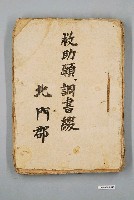 救助願調書綴
北門郡